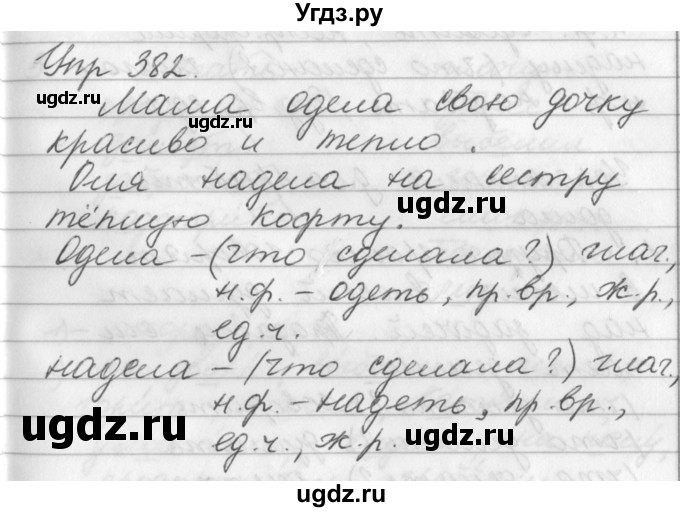 Угдз.ру
Упр 382.
Мама одела свою дочку
красиво и тепло.
Оля надела на сестру
тёплую кофту.
Одела – (что сделала?) глаг.,
н.ф. – одеть, пр.вр., ж.р.,
ед.ч.
надела – (что сделала?) глаг.,
н.ф. – надеть, пр.вр.,
ед.ч., ж.р.
www.ugdz.ru
www.ugdz.ru
ugdz.ru
ugdz.ru
ugdz.ru
ugdz.ru
ugdz.ru